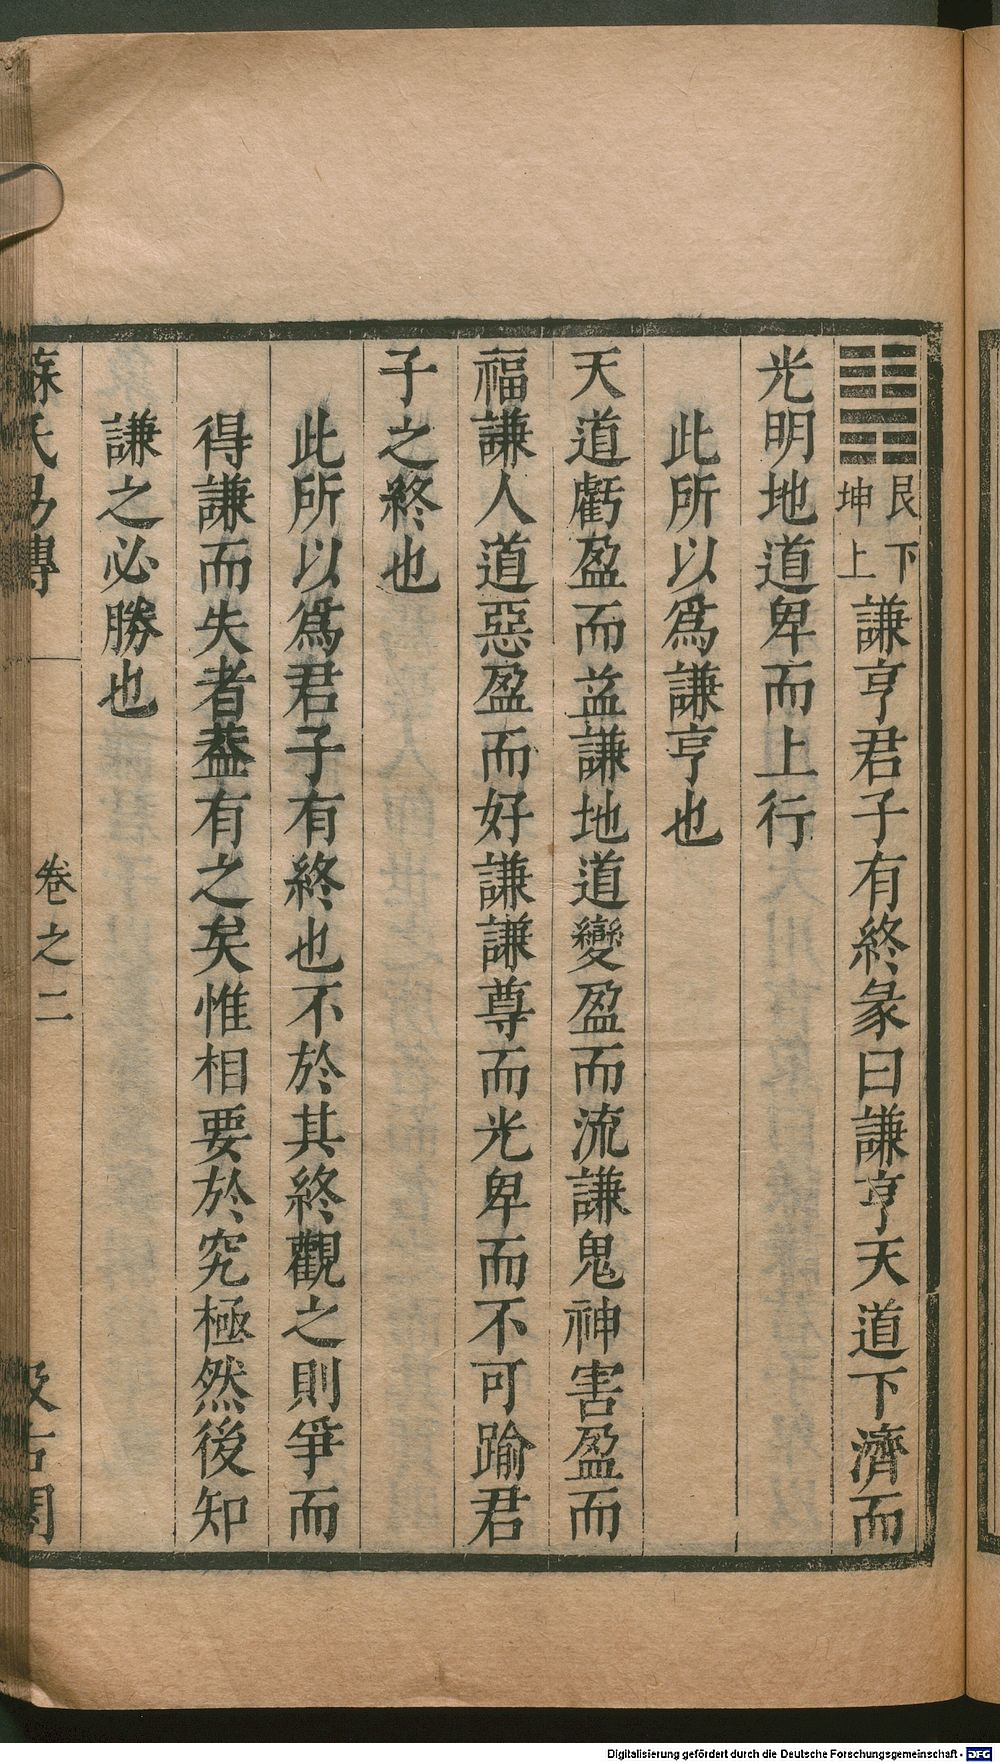 ䷎艮下坤上謙亨君子有終彖曰謙亨天道下濟而
光明地道卑而上行
此所以爲謙亨也
天道虧盈而益謙地道變盈而流謙鬼神害盈而
福謙人道惡盈而好謙謙尊而光卑而不可踰君
子之終也
此所以爲君子有終也不於其終觀之則爭而
得謙而失者葢有之矣惟相要於究極然後知
謙之必勝也
蘇氏易傳 卷之二 汲古閣
Digitalisierung gefördert durch die Deutsche Forschungsgemeinschaft - DFG